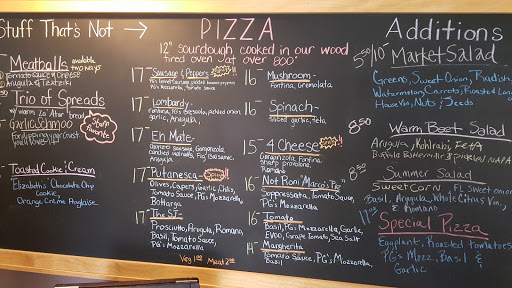 Stuff That's Not →
Meatballs available two ways
Tomato Sauce & Cheese
Arugula & Tzatziki
Trio of Spreads
w/ warm Za'atar bread
Garlic Schmoo
For dipping your crust
you'll love it!!
Staff Favorite
Toasted Cookie & Cream
Elizabeth's Chocolate Chip
Cookie
Orange Crème Anglaise
PIZZA
12" sourdough, cooked in our wood
fired oven at over 800°
17- Sausage & Peppers
PG's Mozzarella, Tomato Sauce
17- Lombardy-
Fontina, PG's Bresaola, pickled onion,
garlic, Arugula
17- En Mate-
Gorgonzola,
candied walnuts, Fig Balsamic,
Arugula
17- Putanesca- Spicy!!
Olives, Capers, Garlic, Chilis,
Tomato Sauce, PG's Mozzarella
Bottarga
17- The SJ-
Prosciutto, Arugula, Romano,
Basil, Tomato Sauce,
PG's Mozzarella
Veg 1.50 Meat 2.50
16- Mushroom-
Fontina, Gremolata
16- Spinach-
sliced garlic, feta
15- 4 Cheese
Gorgonzola, Fontina,
Sharp provolone,
Romano
16- Not Roni "Marco's Pie"
Soppressata, Tomato Sauce,
PG's Mozzarella
16- Tomato-
Basil, PG's Mozzarella, Garlic,
EVOO, Grape Tomato, Sea Salt
14- Margherita
Tomato Sauce, PG's Mozzarella,
Basil
Additions
5.50/10- Market Salad
Greens, Sweet Onion, Radish
Watermelon, Carrots, Roasted Long
House Vin, Nuts & Seeds
8.50 Warm Beet Salad
Arugula, Kohlrabi, Feta
8.50 Summer Salad
Sweet Corn, FL Sweet onion
Basil, Arugula, White Citrus Vin,
& Romano
Special Pizza
Eggplant, Roasted tomatoes
PG's Mozz, Basil &
Garlic